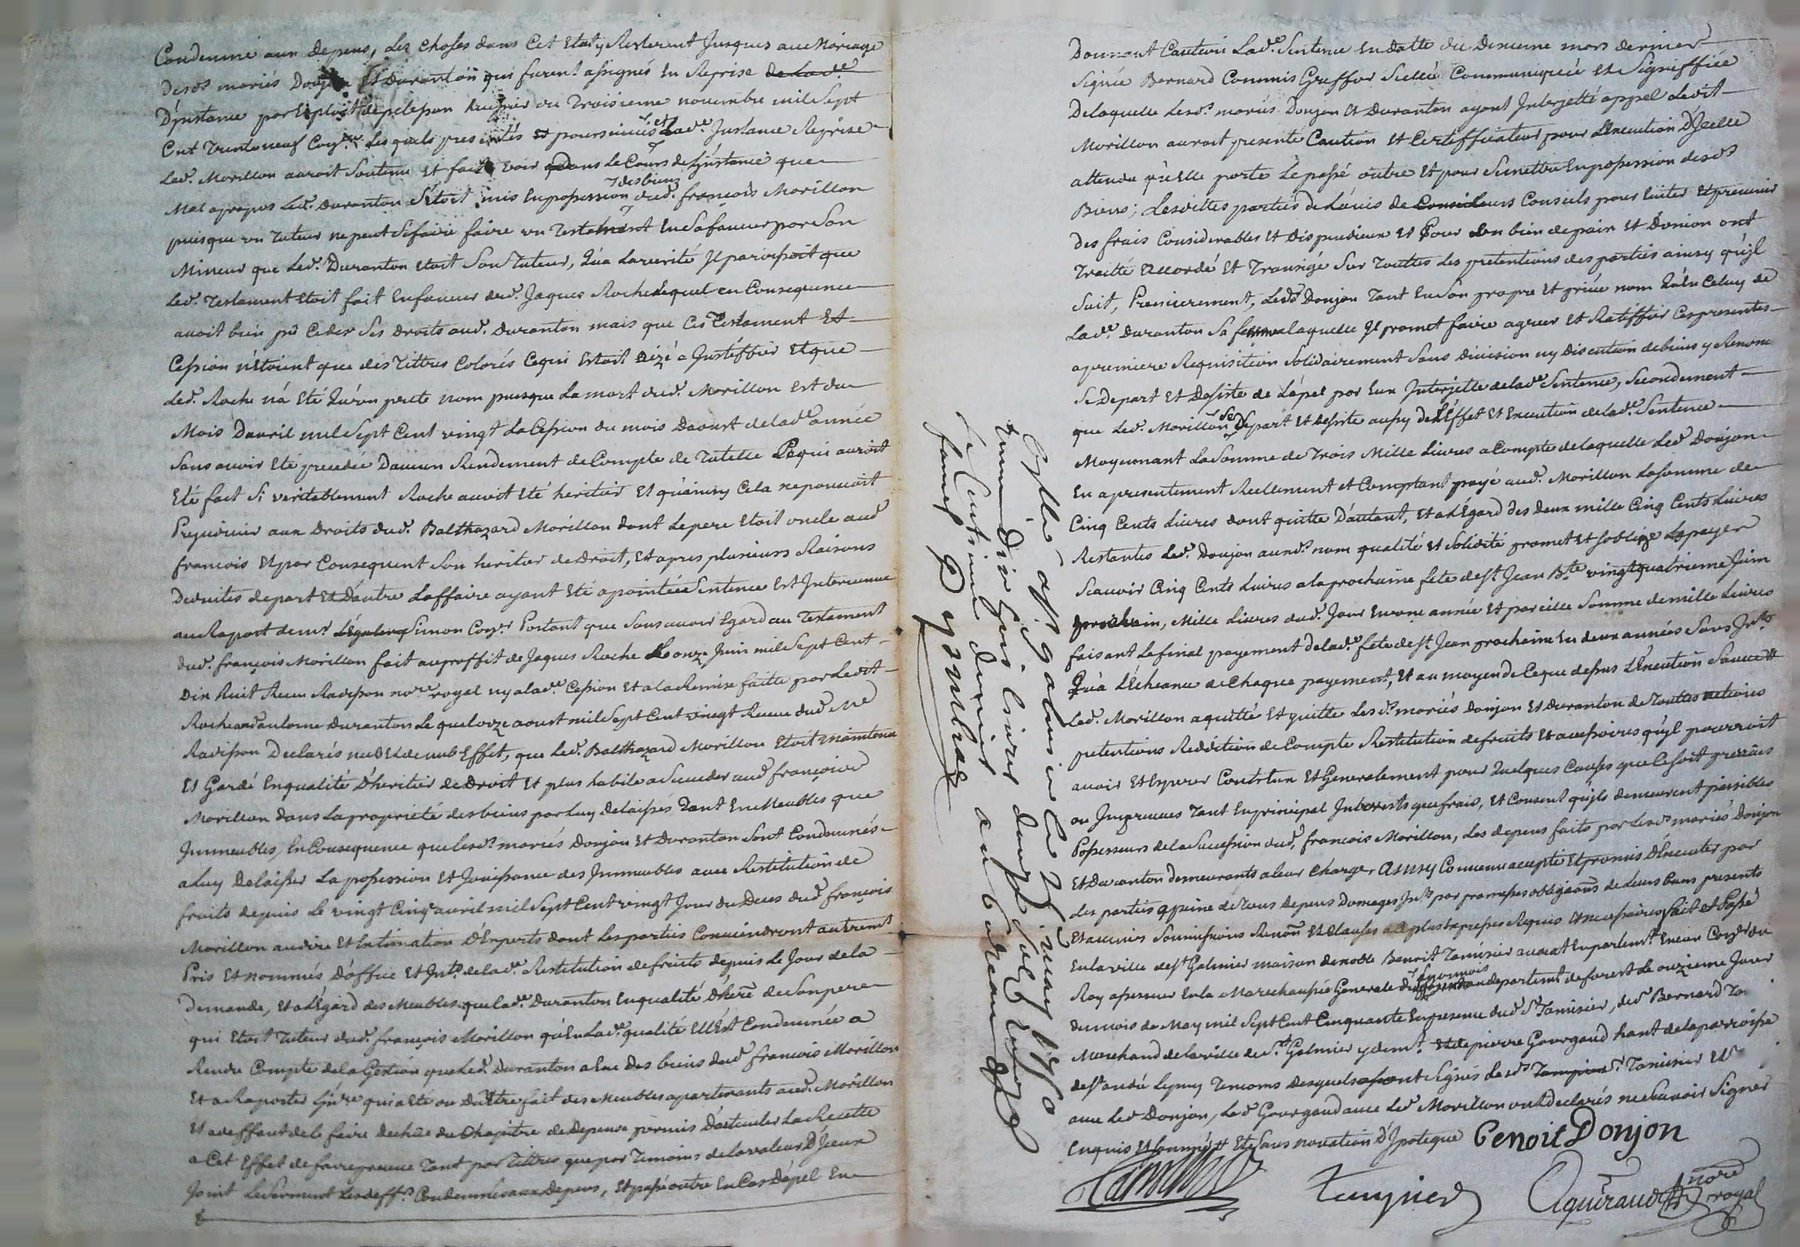 Condemné aux depens, les choses dans Cet Etat y Resterent Jusques au Mariage
desd. mariés Donjon Et Duranton qui furent assignés En Reprise de Lad.e
D'jnstance par Exploit de pelisson huissier du Troisieme novembre mil Sept
Cent Trenteneuf lesquels presentés Et poursuivis Lad.e Jnstance Reprise
Led. Morillon auroit Soutenu Et fait voir dans le Cours de L'jnstance que
Mal apropos Led. Duranton S'etoit mis En possession des biens dud. françois Morillon
puisque un Tuteur ne peut Se faire faire un Testament En Sa faveur par Son
Mineur que Led. Duranton Etoit Son Tuteur, Qu'a La verité Jl paroissoit que
Led. Testament Etoit fait En faveur de d. Jaques Roche Lequel en Consequence
avoit bien pû Ceder Ses Droits aud. Duranton mais que Ces Testament Et
Cession n'étoient que des Tittres Colorés Ce qui Estoit aizé a Justiffier Et que
Led. Roche n'a Eté Qu'un preté nom puisque La mort dud. Morillon Est du
Mois D'avril mil Sept Cent vingt La Cession du mois D'aoust de Lad.e année
Sans avoir Eté precedée D'aucun Rendement de Compte de Tutelle Ce qui auroit
Eté fait Si veritablement Roche avoit Eté heritier Et qu'ainsy Cela ne pouvoit
Prejudicier aux Droits dud. Balthazard Morillon dont Le pere Etoit oncle aud.
françois Et par Consequent Son heritier de Droit, Et apres plusieurs Raisons
Deduites de part Et D'autre L'affaire ayant Eté apointée Sentence Est Intervenue
au Raport de mr. Simon Portant que Sans avoir Egard au Testament
dud. françois Morillon fait au proffit de Jaques Roche Le onze Juin mil Sept Cent
Dix huit Reçu Ravisson no.re royal ny a lad.e Cession Et a la Remise faitte par Ledit
Roche aud. antoine Duranton Le quatorze aoust mil Sept Cent vingt Receue dud. Me
Ravisson Declarés nuls Et de nul Effet, que Led. Balthazard Morillon Etoit maintenu
Et Gardé En qualité D'heritier de Droit Et plus habile a Succeder aud. françois
Morillon dans La proprieté des biens par Luy delaissés Tant En Meubles que
Jmmeubles, En Consequence que lesd. mariés Donjon Et Duranton Sont Condamnés
a Luy Delaisser La possession Et Jouissance des Jmmeubles avec Restitution de
fruits depuis Le vingt Cinq avril mil Sept Cent vingt Jour du Deces dud. françois
Morillon au dire Et Estimation D'Experts dont Les parties Conviendront autrement
Pris Et nommés D'office Et Jnt.s de lad.e Restitution de fruits depuis Le Jour de la
Demande, Et a L'egard des Meubles que lad.e Duranton En qualité D'here. de Son pere
qui Etoit Tuteur dud. françois Morillon qu'En Lad.e qualité Elle Est Condamnée a
Rendre Compte de la Gestion que Led. Duranton a Eue des biens dud. françois Morillon
Et a Raporter qui a Eté ou Dû Etre fait des Meubles apartenants aud. Morillon
Et a deffaut de le faire dechûe du Chapitre de Depense permis D'articuler La Recette
a Cet Effet de faire preuve Tant par Tittres que par Temoins de la valeur D'Jceux
Joint Le Serment Condemnés aux Depens, Et passé outre En Cas D'apel En
Donnant Caution Lad.e Sentence En datte du Dixieme mars dernier
Signée Bernard Commis Greffier Scellée Communiquée Et Signiffiée
De laquelle Lesd. mariés Donjon Et Duranton ayant Jnterjetté appel Ledit
Morillon auroit presenté Caution et Certifficateur pour L'Execution D'Jcelle
attendu qu'Elle porte Le passé outre Et pour Se mettre En possession desd.
Biens; Lesdittes parties de L'avis de Conseils pour Eviter Et prevenir
des frais Considerables Et Dispendieux Et Pour bien de paix Et D'union ont
Traitté accordé Et Transigé Sur Touttes Les pretentions des parties ainsy qu'jl
Suit, Premierement, Led. Donjon Tant En Son propre Et privé nom Qu'En Celuy de
La d.e Duranton Sa femme laquelle Jl promet faire agreer Et Ratiffier Ces presentes
a premiere Requisition Solidairement Sans Division ny Discution de biens y Renonç
Se Depart Et Desiste de L'apel par Eux Jnterjetté de lad.e Sentence, Secondement
que Led. Morillon Se Depart Et desiste aussy de L'effet Et Execution de Lad.e Sentence
Moyennant La Somme de Trois Mille Livres a Compte de laquelle Led. Donjon
En a presentement Reellement et Comptant payé aud. Morillon La Somme de
Cinq Cents Livres dont quitte D'autant, Et a L'Egard des deux mille Cinq Cents Livres
Restantes Led. Donjon aud. nom qualité et Solidité promet et S'oblige La payer
Scavoir Cinq Cents Livres a la prochaine fete de St. Jean Bte. vingt quatrieme Juin
prochain, Mille Livres dud. Jour En une année Et pareille Somme de mille Livres
faisant Le final payement de lad.e fete de St. Jean prochaine En deux années Sans Jnt.s
Qu'a L'Echeance de Chaque payement, Et au moyen de Ce que dessus L'Execution
Led. Morillon a quitté Et quitte Lesd. mariés Donjon Et Duranton de Touttes actions
pretentions Reddition de Compte Restitution de fruits Et accessoires qu'jl pourroit
avoir Et Esperer Contr'Eux Et Generalement pour Quelques Causes que Ce Soit prevûes
ou Jmprevues Tant En principal Jnterests que frais, Et Consent qu'jls demeurent paisibles
Possesseurs de la Succession dud. françois Morillon, Les depens faits par Lesd. mariés Donjon
Et Duranton demeurants a leur Charge, Ainsy Convenu accepté Et promis D'Executer par
Les parties a peine de Tous depens Domages Jnt.s par promesses obligations de Leurs biens presents
Et avenir Soumissions Renon. Et Clauses Requises Et necessaires fait et Passé
En la ville de St. Galmier maison de noble Benoit Tamisier avocat En parlemt. Ancien Coner. du
Roy assesseur En la Marechaussée Generale du Lyonnois departemt. de forest Le onzieme Jour
du mois de May mil Sept Cent Cinquante En presence dud. Sr. Tamisier, de Sr. Bernard
Marchand de la ville de St. Galmier y demt. Et de pierre Gourgaud hant de la parroisse
de St. andré Le puy Temoins desquels Signés Led. Sr. Tamisier Et
avec Led. Donjon, Led. Gourgaud avec Led. Morillon ont Declarés ne Scavoir Signer
Enquis Et Sommés Et Sans novation D'Ypoteque Benoit Donjon
Tamisier
Aguiraud
Nore. royal
Conllé a St. galmier Le 25 may 1750
Reçu dix huit livres douze sols
Le Centieme denier au bureau de